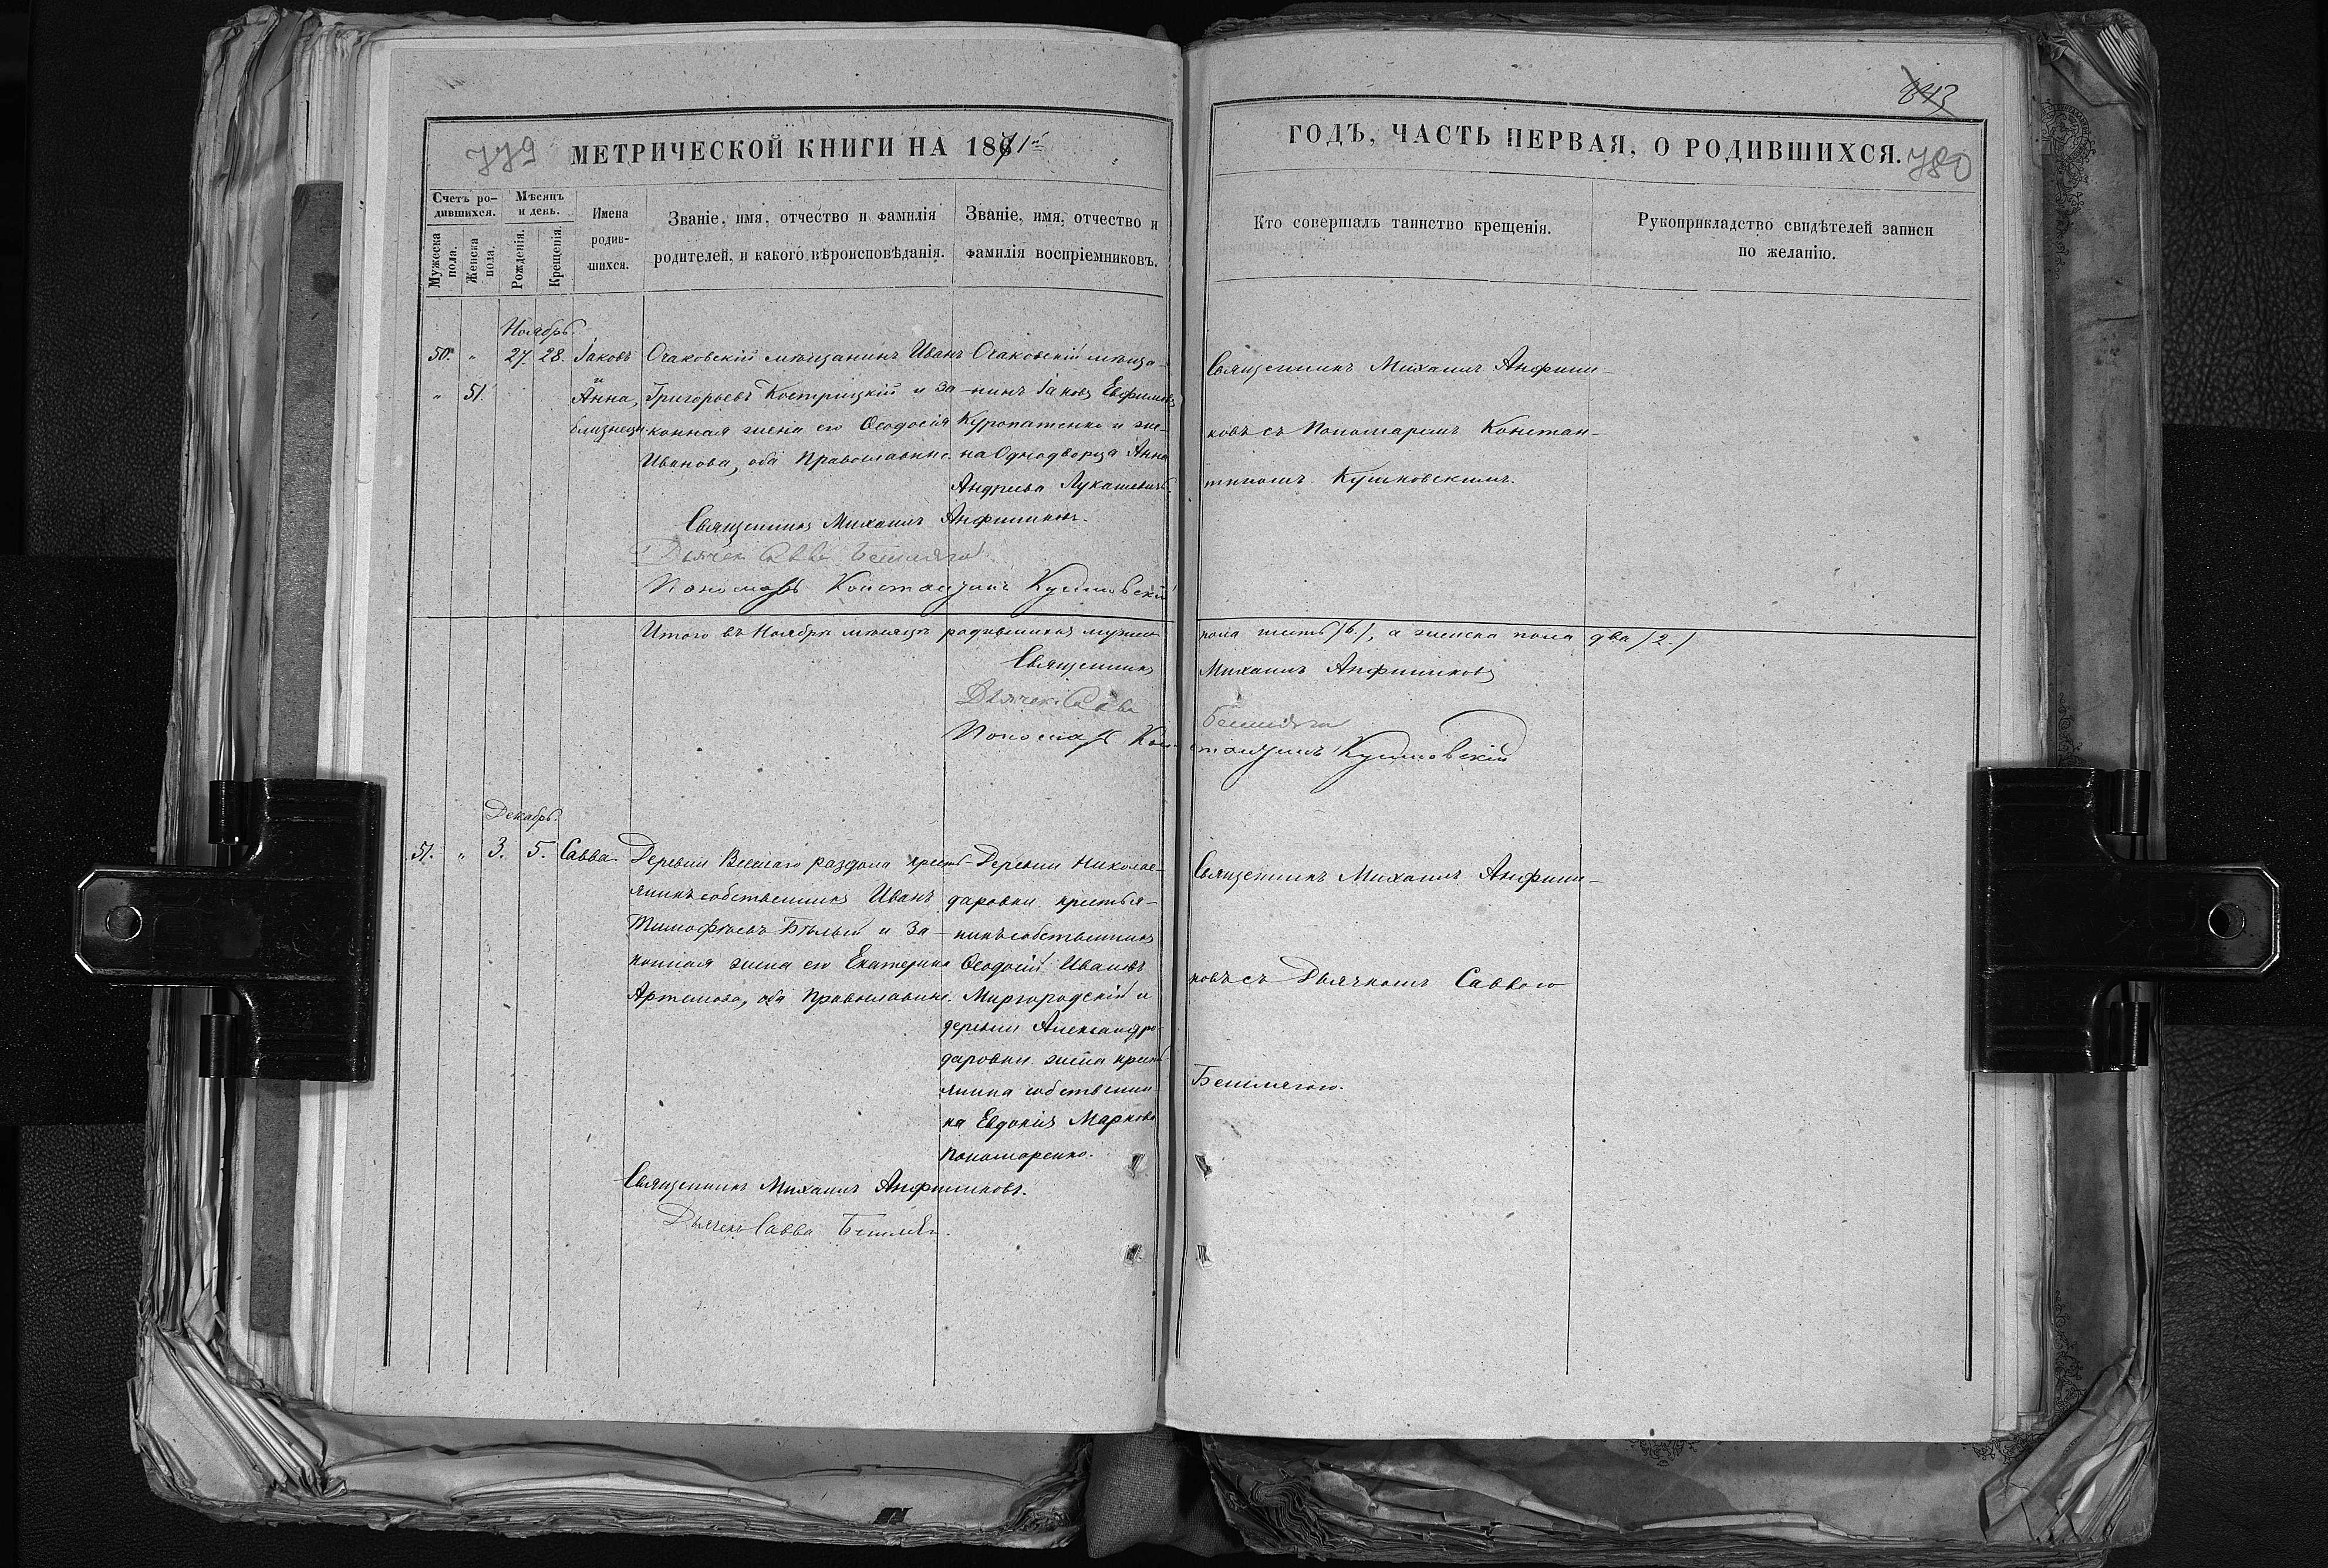 843
779 МЕТРИЧЕСКОЙ КНИГИ НА 1871й
ГОДЪ, ЧАСТЬ ПЕРВАЯ, О РОДИВШИХСЯ. 780
Счетъ родившихся.
Мужеска пола.
Женска пола.
Мѣсяцъ и день.
Рожденія.
Крещенія.
Имена родившихся.
Званіе, имя, отчество и фамилія
родителей, и какого вѣроисповѣданія.
Званіе, имя, отчество и
фамилія воспріемниковъ.
Кто совершалъ таинство крещенія.
Рукоприкладство свидѣтелей записи
по желанію.
Ноябрь.
50. " 27. 28. Іаковъ
и
" 51. Анна,
близнецы.
Очаковскій мѣщанинъ Иванъ
Григорьевъ Кострицкій и за-
конная жена его Ѳеодосія
Иванова, оба православные.
Очаковскій мѣща-
нинъ Іаковъ Евфимовъ
Куропатенко и же-
на Однодворца Анна
Андреева Лукашевичъ.
Священникъ Михаилъ Анфини-
ковъ съ Пономаремъ Констан-
тиномъ Кушновскимъ.
Священникъ Михаилъ Анфиниковъ.
Дьячек Савва Бешмяга
Пономарь Константинъ Кушновскій
Итого въ Ноябрѣ мѣсяцѣ родившихся мужеска пола шесть /6./, а женска пола два /2./
Священникъ Михаилъ Анфиниковъ
Дьячек Сава Бешмяга
Пономарь Константинъ Кушновскій
Декабрь.
51. " 3. 5. Савва.
Деревни Веселаго раздола кресть-
янинъ собственникъ Иванъ
Тимофѣевъ Бѣлый и за-
конная жена его Екатерина
Артемова, оба православные.
Деревни Николае-
даровки крестья-
нинъ собственникъ
Ѳеодосій Ивановъ
Миргородскій и
деревни Александро-
даровки жена кресть-
янина собственни-
ка Евдокія Маркова
Пономаренко.
Священникъ Михаилъ Анфини-
ковъ съ Дьячкомъ Саввою
Бешмягою.
Священникъ Михаилъ Анфиниковъ.
Дьячекъ Савва Бешмяга.